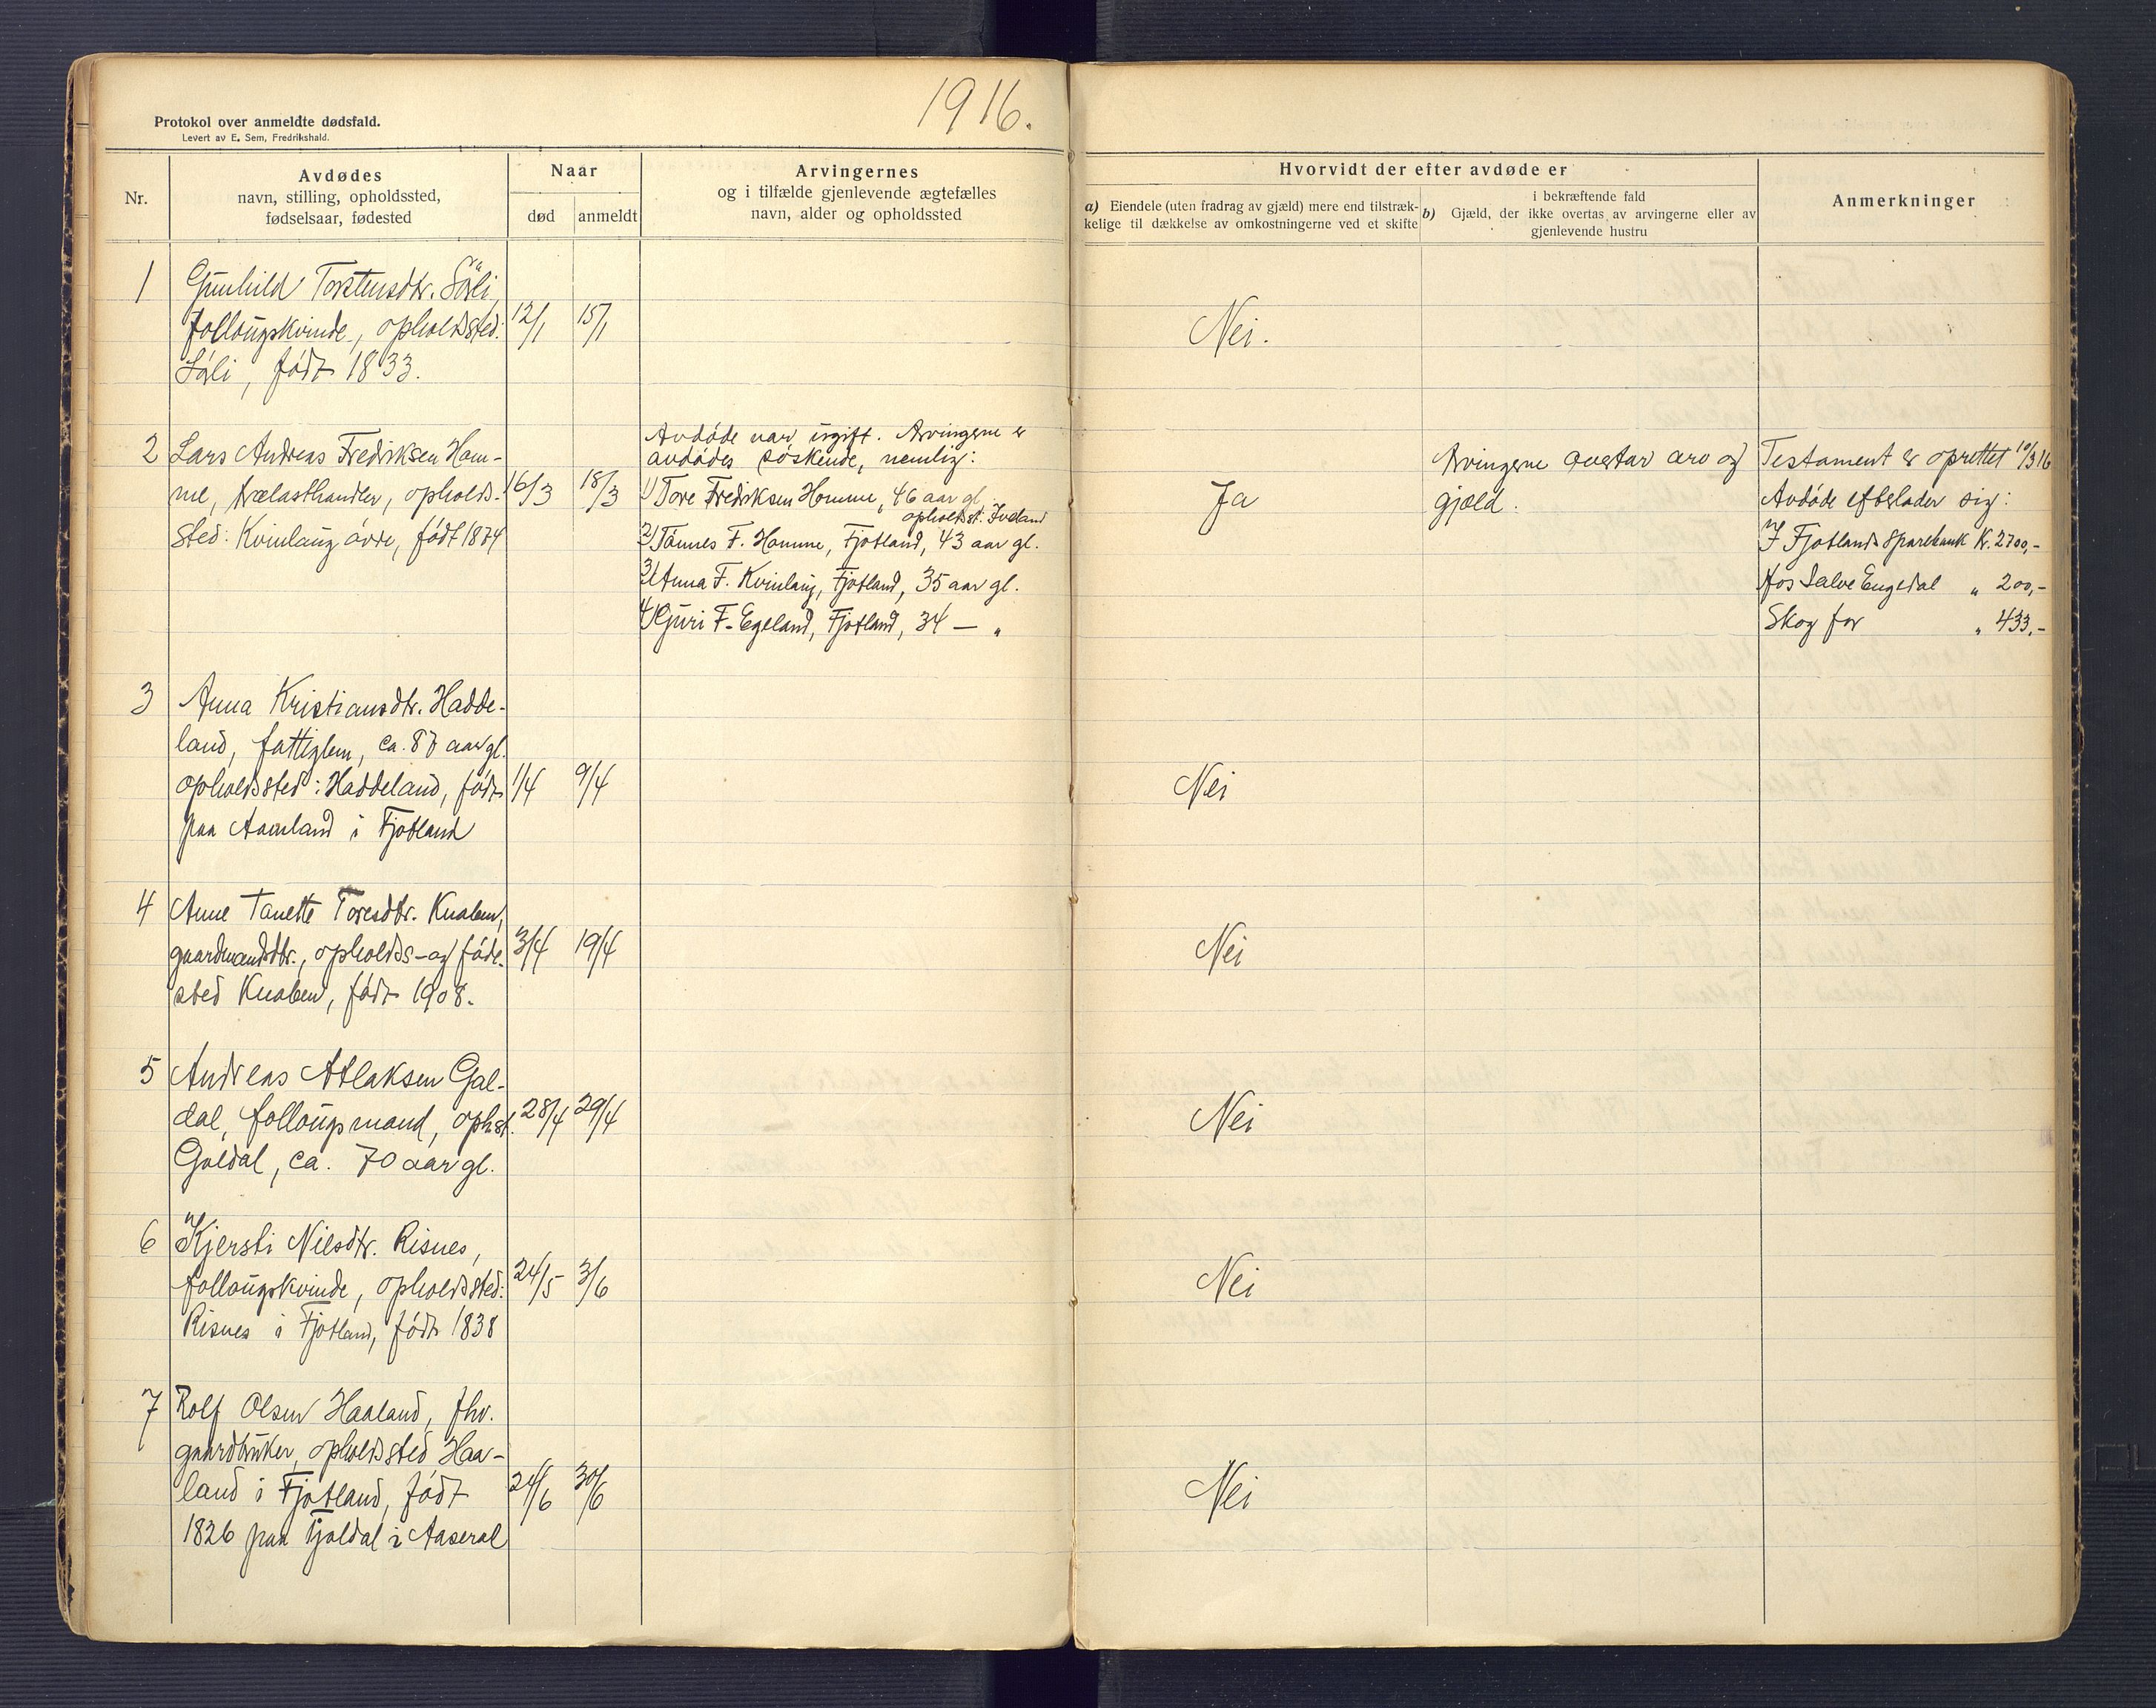 1916.
Protokol over anmeldte dødsfald.
Levert av E. Sem, Fredrikshald.
Nr.
Avdødes
navn, stilling, opholdssted,
fødselsaar, fødested
Naar
død
anmeldt
Arvingernes
og i tilfælde gjenlevende ægtefælles
navn, alder og opholdssted
Hvorvidt der efter avdøde er
a) Eiendele (uten fradrag av gjæld) mere end tilstræk-
kelige til dækkelse av omkostningerne ved et skifte
i bekræftende fald
b) Gjæld, der ikke overtas av arvingerne eller av
gjenlevende hustru
Anmerkninger
1
Gunhild Torstensdtr. Sørli,
follougskvinde, opholdssted:
Sørli, født 1833.
12/1
15/1
Nei.
2
Lars Andreas Fredriksen Hom-
me, trælasthandler, opholds-
sted: Kvinlaug øvre, født 1874
16/3
18/3
Avdøde var ugift. Arvingerne er
avdødes søskende, nemlig:
1) Tore Fredriksen Homme, 46 aar gl.
opholdsst: Iveland
2) Tønnes F. Homme, Fjotland, 43 aar gl.
3) Anna F. Kvinlaug, Fjotland, 35 aar gl.
4) Guri F. Egeland, Fjotland, 34 — "
Ja
Arvingerne overtar arv og
gjæld.
Testament er oprettet 10/3 16
Avdøde efterlader sig:
I Fjotlands Sparebank Kr. 2700,-
Hos Salve Engedal " 200,-
Skog for " 433,-
3
Anna Kristiansdtr. Hadde-
land, fattiglem, ca. 87 aar gl.
opholdssted: Haddeland, født
paa Aamland i Fjotland
1/4
9/4
Nei
4
Anne Tanette Toresdtr. Knaben,
gaardmandsdtr., opholds- og føde-
sted Knaben, født 1908.
3/4
19/4
Nei
5
Andreas Atlaksen Gal-
dal, follougsmand, ophst.
Galdal, ca. 70 aar gl.
28/4
29/4
Nei
6
Kjersti Nilsdtr. Risnes,
follougskvinde, opholdssted:
Risnes i Fjotland, født 1838
24/5
3/6
Nei
7
Rolf Olsen Haaland, fhv.
gaardbruker, opholdssted Haa-
land i Fjotland, født
1826 paa Fjoldal i Aaseral
24/6
30/6
Nei